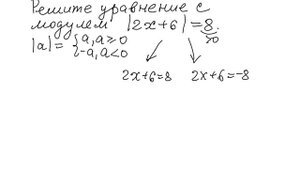 Решите уравнение с
модулем |2x+6|=8
>0
|a|= {a, a≥0
{-a, a<0
2x+6=8 2x+6=-8